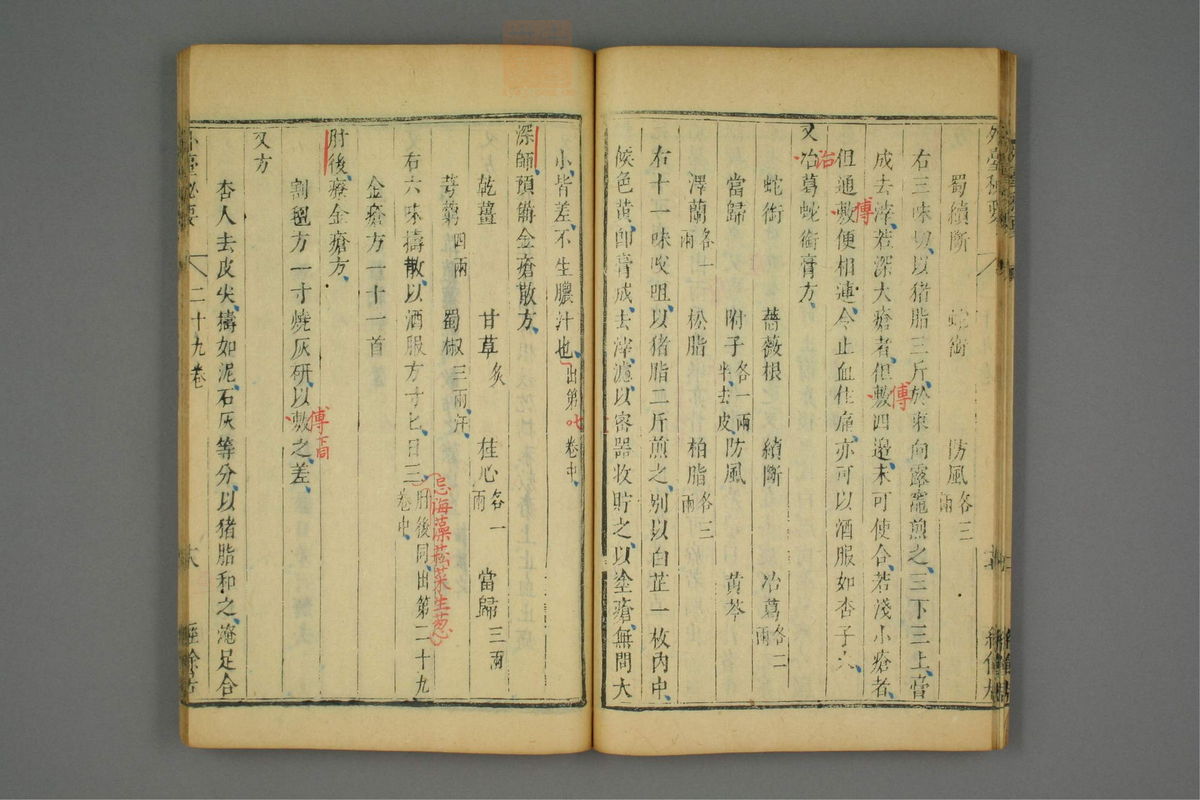 外臺秘要
蜀續斷 蛇銜 防風各三兩
右三味切以猪脂三斤於東向露竈煎之三下三上膏
成去滓若深大瘡者但敷四邊未可使合若淺小瘡者
傅
但通敷便相連令止血住痛亦可以酒服如杏子大
傅
又冶葛蛇銜膏方
治
蛇銜 薔薇根 續斷 冶葛各二兩
當歸 附子各一兩半去皮 防風 黃芩
澤蘭各一兩 松脂 柏脂各三兩
右十一味㕮咀以猪脂二斤煎之別以白芷一枚內中
候色黃即膏成去滓濾以密器收貯之以塗瘡無問大
小皆差不生膿汁也出第 卷中
深師預備金瘡散方
乾薑 甘草炙 桂心各一兩 當歸三兩
芎藭四兩 蜀椒三兩汗
右六味擣散以酒服方寸匕日三肘後同出第二十九卷中
忌海藻菘菜生葱
金瘡方一十一首
肘後療金瘡方
割氊方一寸燒灰研以敷之差
傅下同
又方
杏人去皮尖擣如泥石灰等分以猪脂和之淹足合
外臺秘要 二十九卷 經餘居